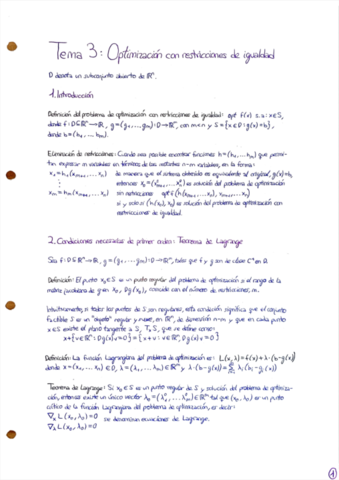 Tema 3: Optimización con restricciones de igualdad
D denota un subconjunto abierto de ℝⁿ.
1. Introducción
Definición del problema de optimización con restricciones de igualdad: opt f(x) s.a: x∈S,
donde f: D⊆ℝⁿ→ℝ, g=(g₁,...,gₘ): D→ℝᵐ, con m<n y S={x∈D: g(x)=b},
donde b=(b₁,...,bₘ).
Eliminación de restricciones: Cuando sea posible encontrar funciones h=(h₁,...,hₘ) que permi-
tan expresar m variables en términos de las restantes n-m variables, en la forma:
x₁=h₁(xₘ₊₁,...,xₙ) de manera que el sistema obtenido es equivalente al original, g(x)=b,
⋮ entonces x₀=(x₁⁰,...,xₙ⁰) es solución del problema de optimización
xₘ=hₘ(xₘ₊₁,...,xₙ) sin restricciones opt f(h(xₘ₊₁,...,xₙ), xₘ₊₁,...,xₙ)
si y solo si (h(x₀), x₀) es solución del problema de optimización con
restricciones de igualdad.
2. Condiciones necesarias de primer orden: Teorema de Lagrange
Sea f: D⊆ℝⁿ→ℝ, g=(g₁,...,gₘ): D→ℝᵐ, tales que f y g son de clase C¹ en D
Definición: El punto x₀∈S es un punto regular del problema de optimización si el rango de la
matriz jacobiana de g en x₀, Dg(x₀), coincide con el número de restricciones, m.
Intuitivamente, si todos los puntos de S son regulares, esta condición significa que el conjunto
factible S es un "objeto" regular y suave, en ℝⁿ, de dimensión n-m y que en cada punto
x∈S existe el plano tangente a S, TₓS, que se define como:
x+{v∈ℝⁿ: Dg(x)v=0}={x+v: v∈ℝⁿ, Dg(x)v=0}
Definición: La función Lagrangiana del problema de optimización es: L(x,λ)=f(x)+λ·(b-g(x))
donde x=(x₁,...,xₙ)∈D, λ=(λ₁,...,λₘ)∈ℝᵐ y λ·(b-g(x))=Σλᵢ(bᵢ-gᵢ(x))
Teorema de Lagrange: Si x₀∈S es un punto regular de S y solución del problema de optimiza-
ción, entonces existe un único vector λ₀=(λ₁⁰,...,λₘ⁰)∈ℝᵐ tal que (x₀,λ₀) es un punto
crítico de la función Lagrangiana del problema de optimización, es decir:
∇ₓL(x₀,λ₀)=0
∇λL(x₀,λ₀)=0
1